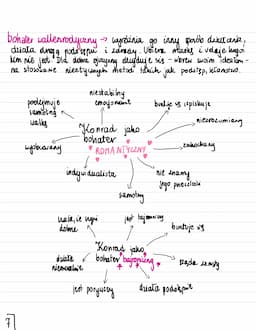 bohater wallenrodyczny → wyróżnia go inny sposób działania,
działa drogą podstępu i zdrady. Ubiera maskę i udaje kogoś
kim nie jest. Dla dobra ojczyzny decyduje się - wbrew swoim ideałom - na
stosowanie nieetycznych metod takich jak podstęp, kłamstwo.
niestabilny
emocjonalnie
podejmuje
samotną
walkę
buntuje się i spiskuje
nierozumiany
Konrad jako
bohater
ROMANTYCZNY
wyobcowany
zakochany
indywidualista
nie znamy
jego przeszłości
samotny
uważa, że czyni
dobrze
jest tajemniczy
buntuje się
Konrad jako
bohater bajroniczny
działa
niemoralnie
żądza zemsty
jest porywczy
działa podstępnie
7